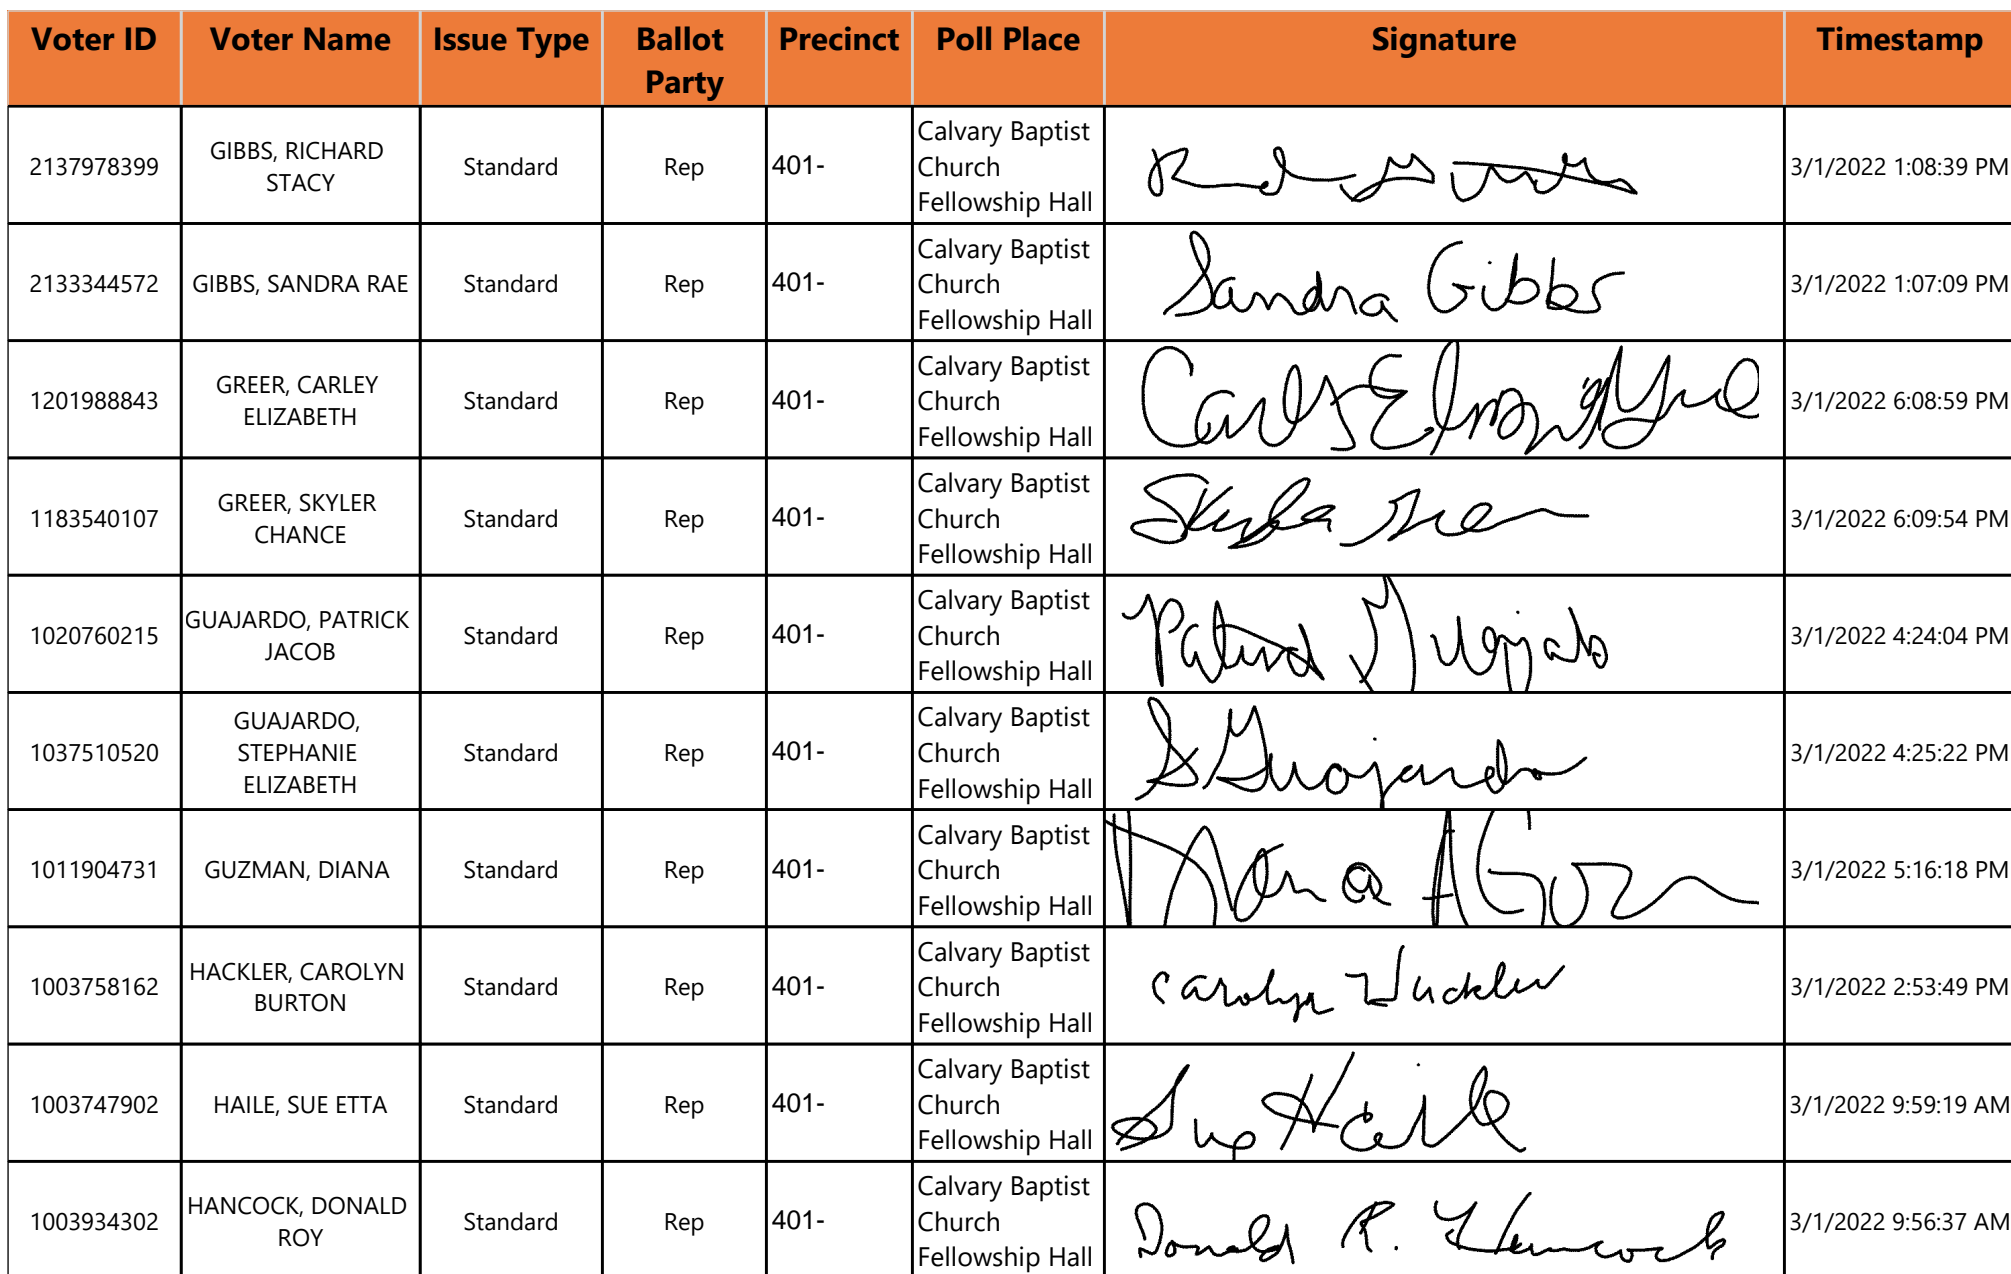 Voter ID Voter Name Issue Type Ballot Party Precinct Poll Place Signature Timestamp
2137978399 GIBBS, RICHARD STACY Standard Rep 401- Calvary Baptist Church Fellowship Hall 3/1/2022 1:08:39 PM
2133344572 GIBBS, SANDRA RAE Standard Rep 401- Calvary Baptist Church Fellowship Hall Sandra Gibbs 3/1/2022 1:07:09 PM
1201988843 GREER, CARLEY ELIZABETH Standard Rep 401- Calvary Baptist Church Fellowship Hall 3/1/2022 6:08:59 PM
1183540107 GREER, SKYLER CHANCE Standard Rep 401- Calvary Baptist Church Fellowship Hall 3/1/2022 6:09:54 PM
1020760215 GUAJARDO, PATRICK JACOB Standard Rep 401- Calvary Baptist Church Fellowship Hall 3/1/2022 4:24:04 PM
1037510520 GUAJARDO, STEPHANIE ELIZABETH Standard Rep 401- Calvary Baptist Church Fellowship Hall S Guajardo 3/1/2022 4:25:22 PM
1011904731 GUZMAN, DIANA Standard Rep 401- Calvary Baptist Church Fellowship Hall 3/1/2022 5:16:18 PM
1003758162 HACKLER, CAROLYN BURTON Standard Rep 401- Calvary Baptist Church Fellowship Hall Carolyn Hackler 3/1/2022 2:53:49 PM
1003747902 HAILE, SUE ETTA Standard Rep 401- Calvary Baptist Church Fellowship Hall Sue Haile 3/1/2022 9:59:19 AM
1003934302 HANCOCK, DONALD ROY Standard Rep 401- Calvary Baptist Church Fellowship Hall Donald R. Hancock 3/1/2022 9:56:37 AM